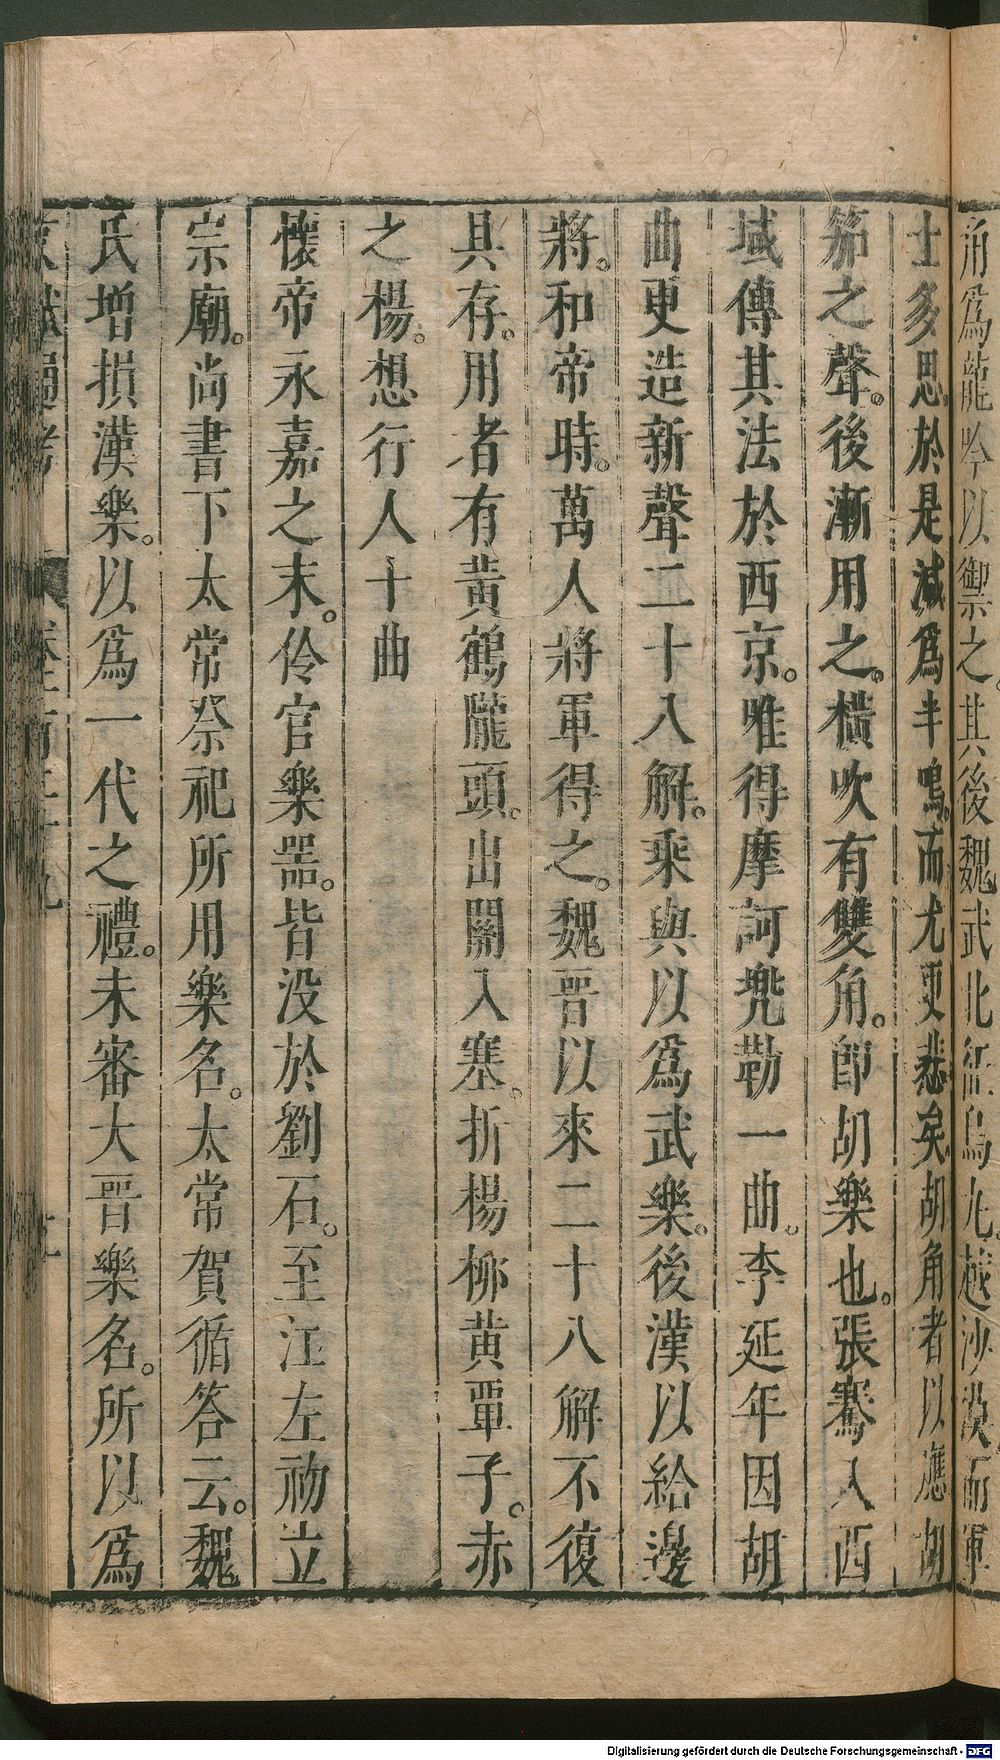 角為龍吟以御之。其後魏武北征烏丸。越沙漠。而軍
士多思。於是減為半鳴。而尤更悲矣。胡角者以應胡
笳之聲。後漸用之。橫吹有雙角。即胡樂也。張騫入西
域傳其法於西京。唯得摩訶兜勒一曲。李延年因胡
曲更造新聲二十八解。乘輿以為武樂。後漢以給邊
將。和帝時。萬人將軍得之。魏晉以來二十八解不復
具存。用者有黃鶴隴頭。出關入塞。折楊柳黃覃子。赤
之楊。想行人十曲
懷帝永嘉之末。伶官樂器。皆没於劉石。至江左初立
宗廟。尚書下太常祭祀所用樂名。太常賀循答云。魏
氏增損漢樂。以為一代之禮。未審大晉樂名。所以為
Digitalisierung gefördert durch die Deutsche Forschungsgemeinschaft - DFG